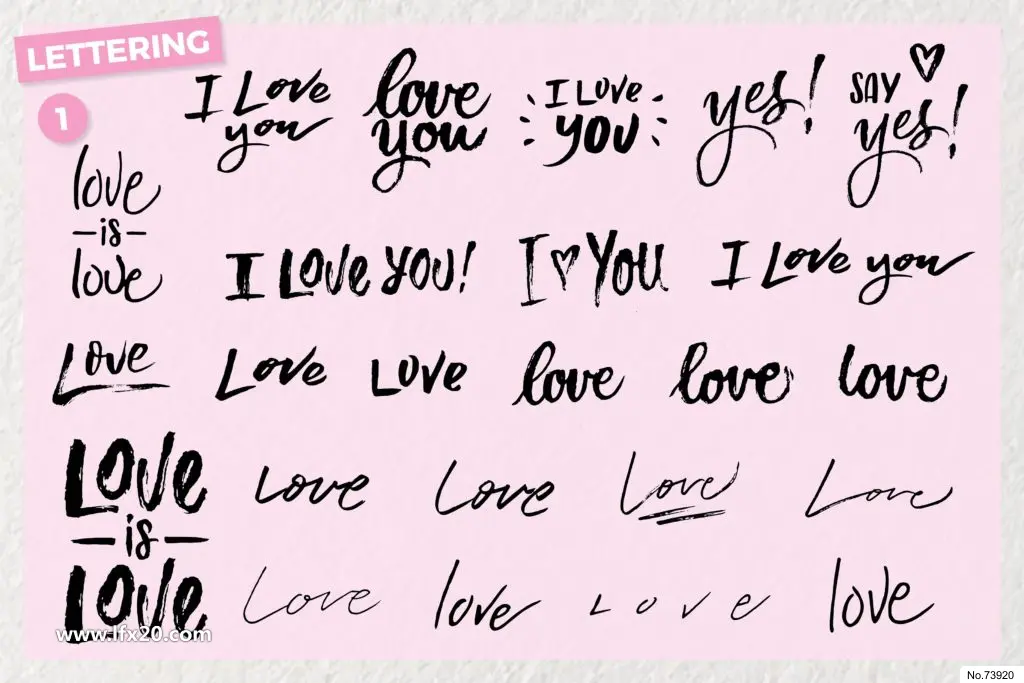 LETTERING
1
I Love
you
love
you
I LOVE
YOU
yes!
SAY
yes!
love
is
love
I LOVE YOU!
I YOU
I Love you
Love
Love
Love
love
love
love
LOVE
is
LOVE
Love
Love
Love
Love
Love
love
Love
love
www.lfx20.com
No.73920